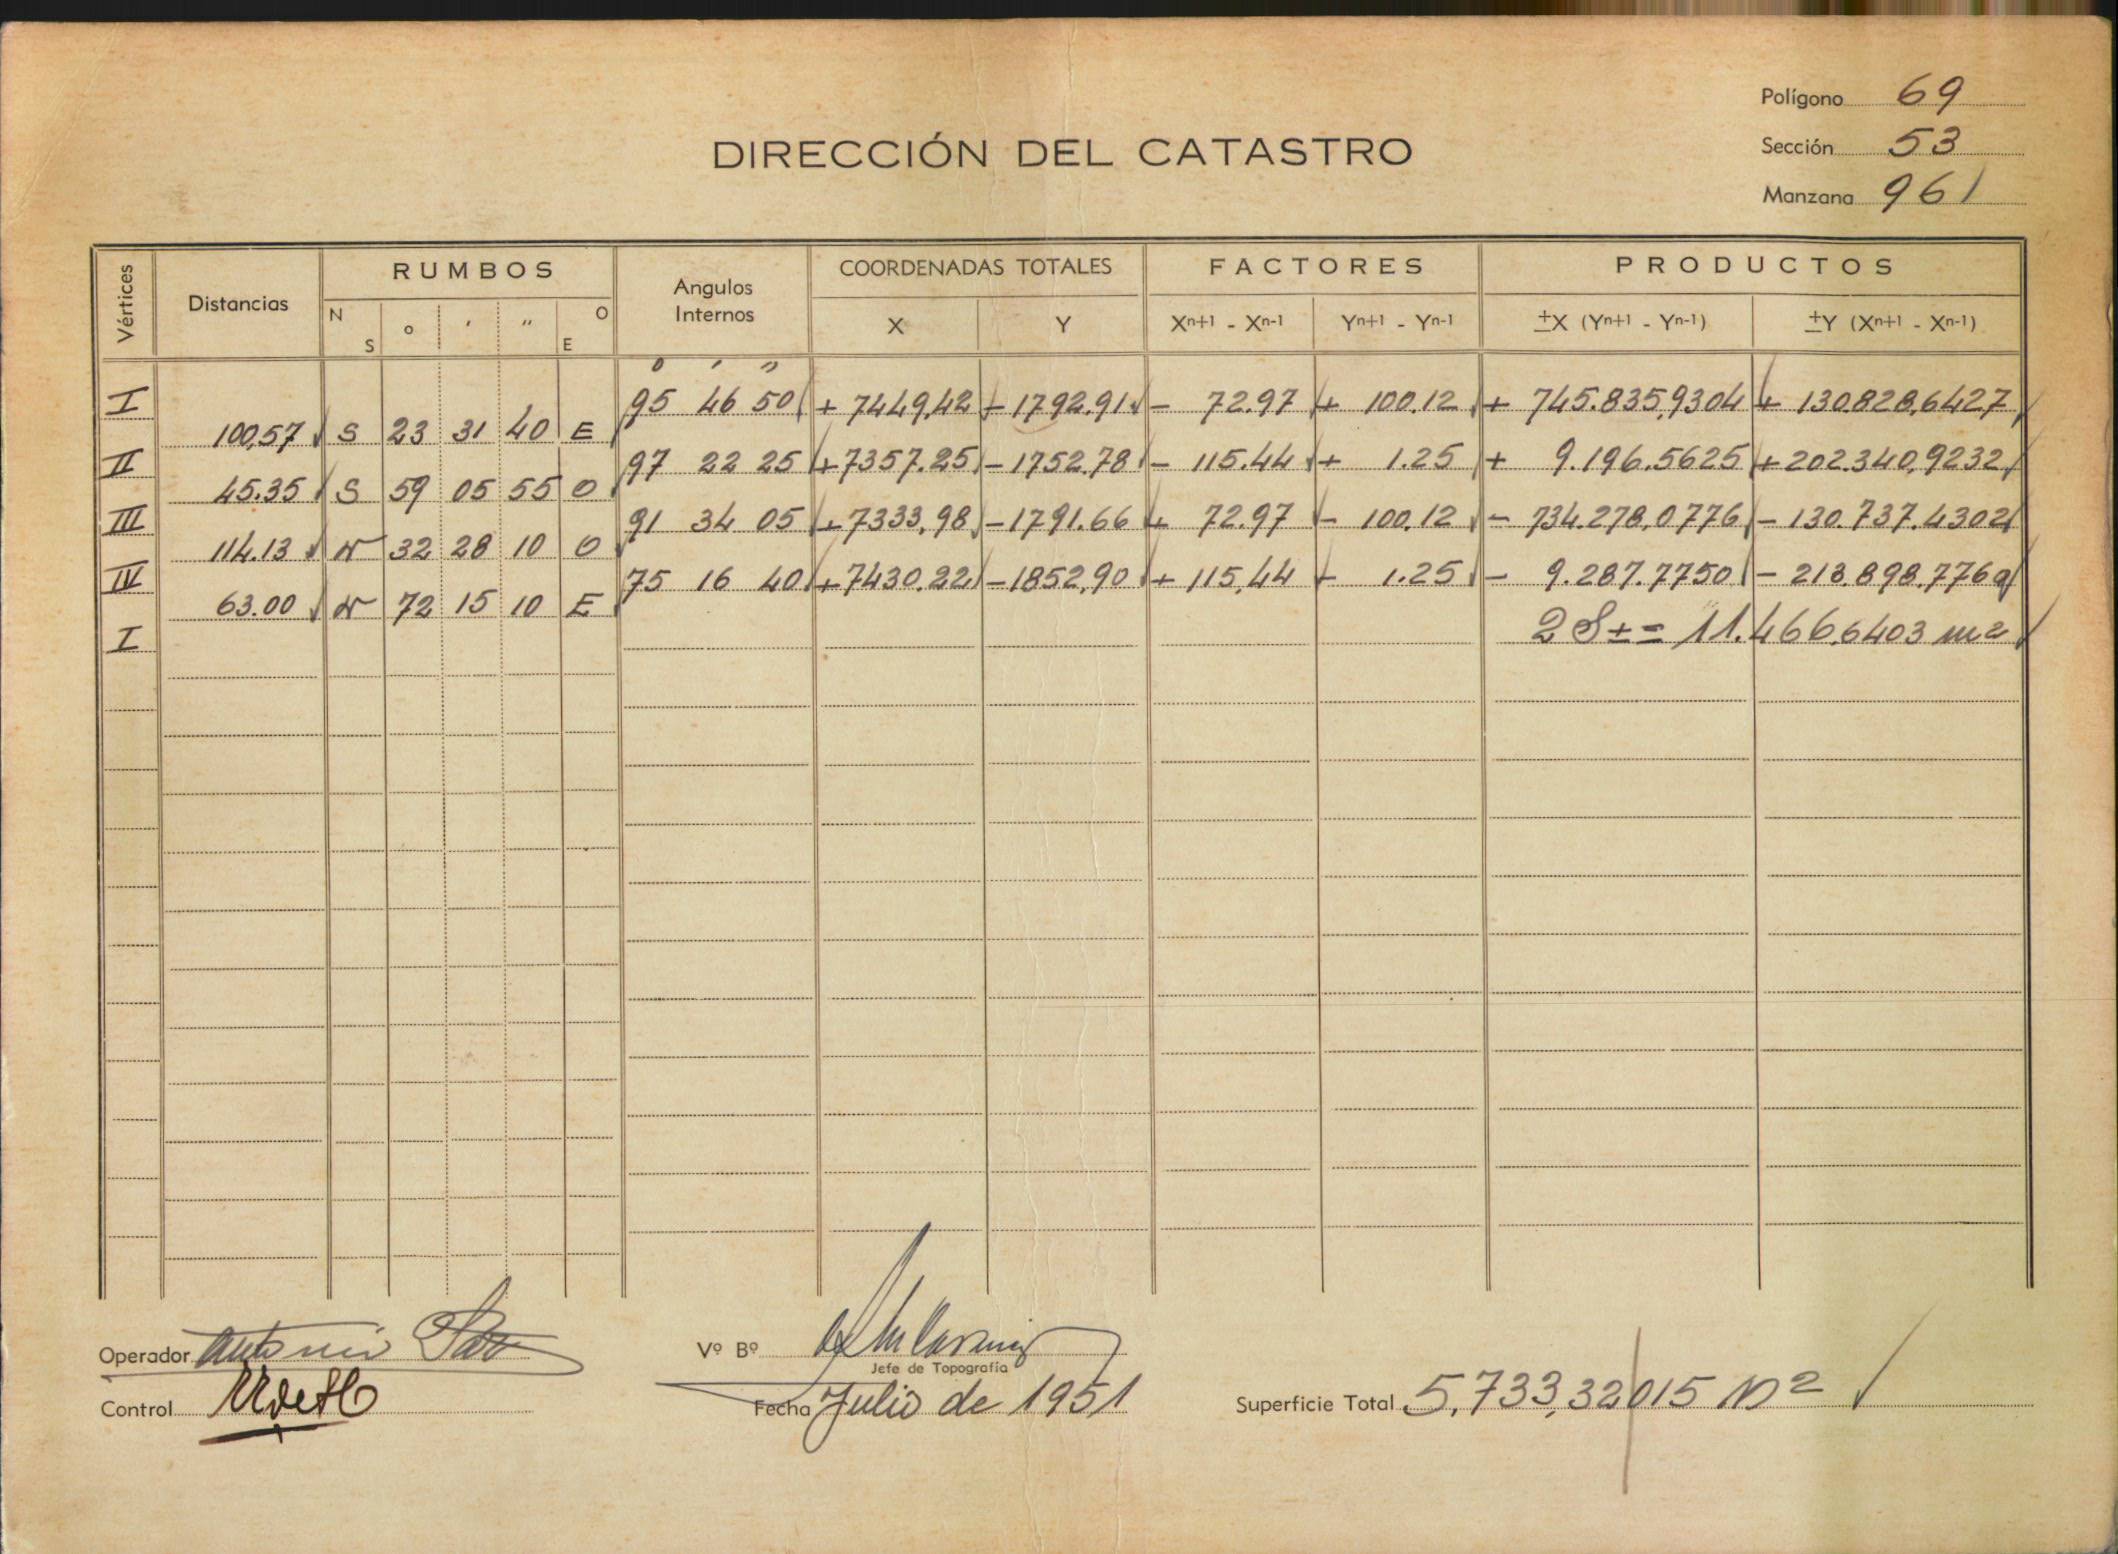 Polígono 69
DIRECCIÓN DEL CATASTRO
Sección 53
Manzana 961
Vértices Distancias RUMBOS Angulos Internos COORDENADAS TOTALES FACTORES PRODUCTOS
N S ° ' " O E X Y Xn+1 - Xn-1 Yn+1 - Yn-1 ±X (Yn+1 - Yn-1) ±Y (Xn+1 - Xn-1)
° ' "
I 95 46 50 + 7449,42 - 1792.91 - 72.97 + 100.12 + 745.835,9304 + 130.828,6427
100,57 S 23 31 40 E
II 97 22 25 + 7357.25 - 1752.78 - 115.44 + 1.25 + 9.196.5625 + 202.340,9232
45.35 S 59 05 55 O
III 91 34 05 + 7333,98 - 1791.66 + 72.97 - 100,12 - 734.278,0776 - 130.737.4302
114.13 N 32 28 10 O
IV 75 16 40 + 7430.22 - 1852,90 + 115,44 - 1.25 - 9.287.7750 - 213.898,7760
63.00 N 72 15 10 E
I 2 S ± = 11.466,6403 m2
Operador Antonio
Vº Bº
Jefe de Topografía
Control
Fecha Julio de 1951
Superficie Total 5.733,32015 m2